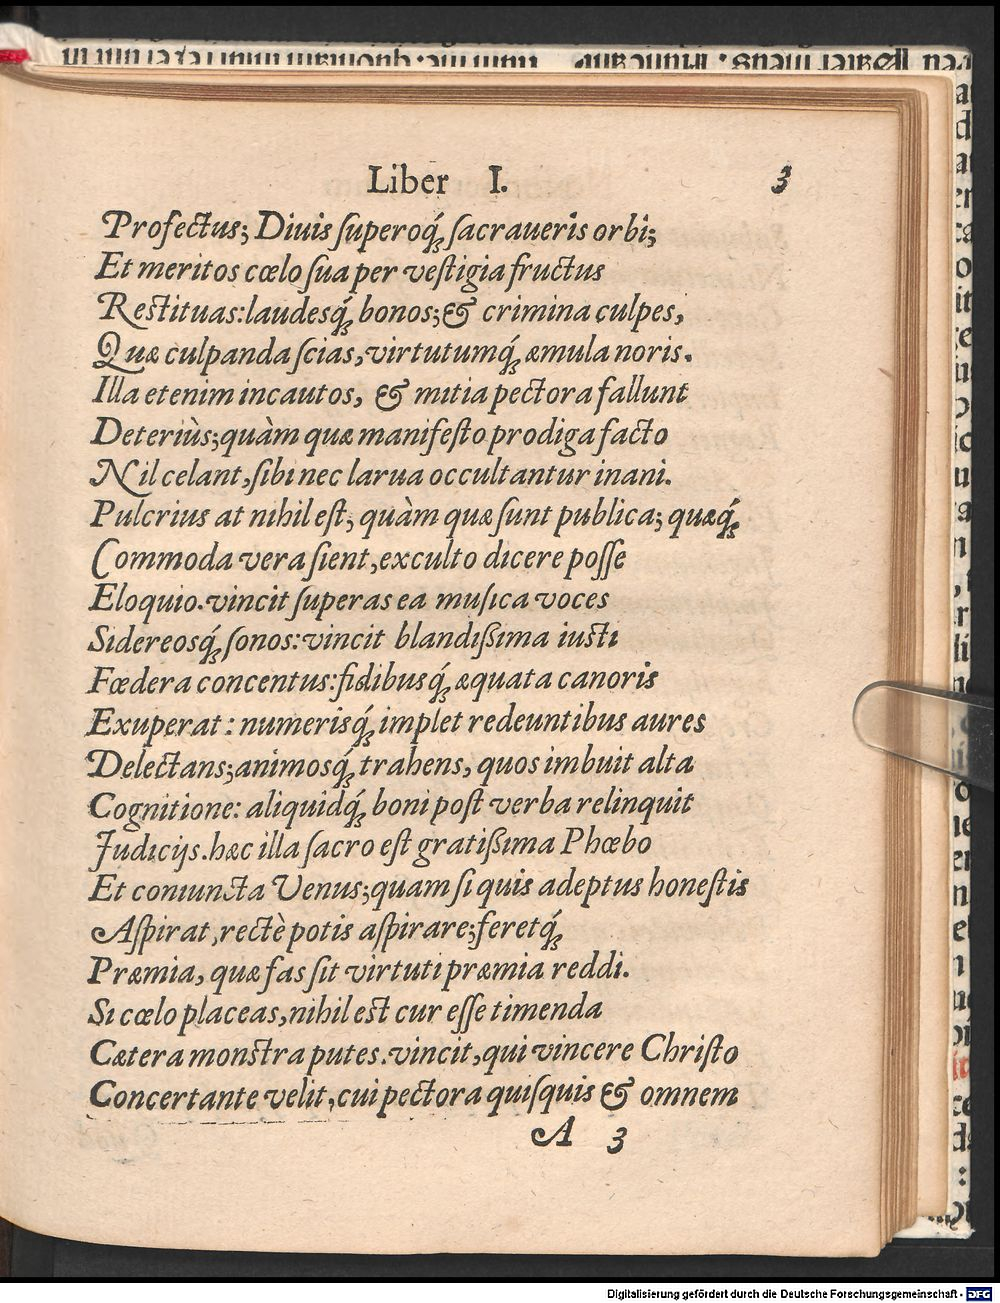 Liber I. 3
Profectus; Diuis ſuperoq́; ſacraueris orbi;
Et meritos cœlo ſua per veſtigia fructus
Reſtituas: laudesq́; bonos; & crimina culpes,
Quæ culpanda ſcias, virtutumq́; æmula noris.
Illa etenim incautos, & mitia pectora fallunt
Deteriùs; quàm quæ manifeſto prodiga facto
Nil celant, ſibi nec larua occultantur inani.
Pulcrius at nihil eſt, quàm quæ ſunt publica; quæq́;
Commoda vera ſient, exculto dicere poſſe
Eloquio. vincit ſuperas ea muſica voces
Sidereosq́; ſonos: vincit blandißima iuſti
Fœdera concentus: fidibusq́; æquata canoris
Exuperat: numerisq́; implet redeuntibus aures
Delectans; animosq́; trahens, quos imbuit alta
Cognitione: aliquidq́; boni poſt verba relinquit
Judicijs. hæc illa ſacro eſt gratißima Phœbo
Et coniuncta Venus; quam ſi quis adeptus honeſtis
Aſpirat, rectè potis aſpirare; feretq́;
Præmia, quæ fas ſit virtuti præmia reddi.
Si cœlo placeas, nihil eſt cur eſſe timenda
Cætera monſtra putes. vincit, qui vincere Chriſto
Concertante velit, cui pectora quiſquis & omnem
A 3
Digitalisierung gefördert durch die Deutsche Forschungsgemeinschaft - DFG